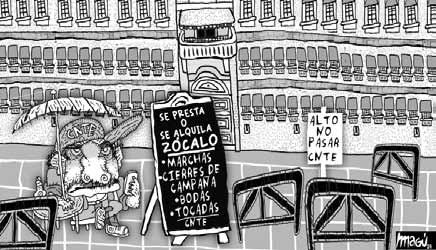 CNTE
SE PRESTA
O
SE ALQUILA
ZÓCALO
•MARCHAS
•CIERRES DE
CAMPAÑA
•BODAS
•TOCADAS
CNTE
ALTO
NO
PASAR
CNTE
magú